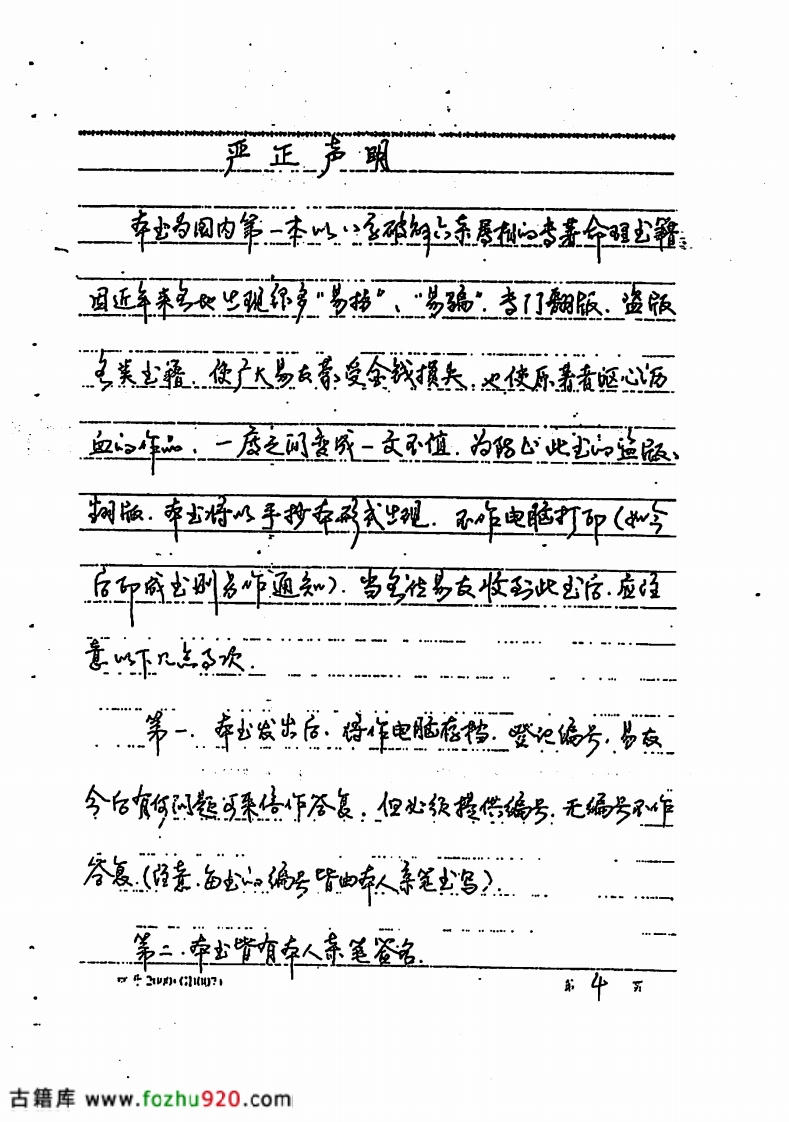 严正声明
本书为国内第一本以八字破解六亲属相的专著命理书籍
因近年来各地出现很多“易拐”、“易骗”，专门翻版、盗版
各类书籍，使广大易友蒙受金钱损失，也使原著者呕心沥
血的作品，一度之间变成一文不值，为防止此书的盗版、
翻版，本书将以手抄本形式出现，不作电脑打印（如今
后印成书则另作通知）．当各位易友收到此书后，应注
意以下几点事次．
第一．本书发出后，将作电脑存档，登记编号，易友
今后有何问题可来信作答复，但必须提供编号，无编号不作
答复．（注意，每书的编号皆由本人亲笔书写）．
第二．本书皆有本人亲笔签名．
第 4 页
古籍库 www.fozhu920.com